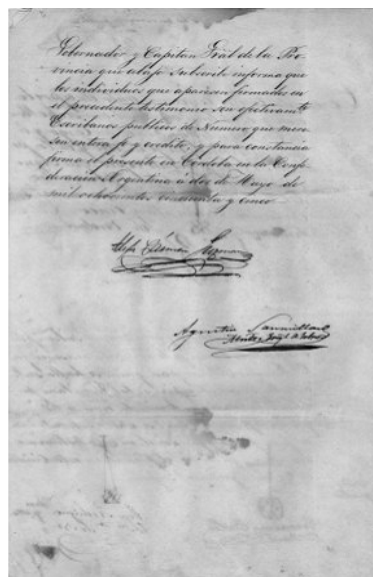 Gobernador y Capitan Gral de la Pro-
vincia que abajo subscribe informa que
los individuos que aparecen firmados en
el precedente testimonio son efectivamte
Escribanos publicos de Numero que mere-
sen entera fe y credito, y para constancia
firma el presente en Cordoba en la Confe-
deracion Argentina á dos de Mayo de
mil ochocientos cincuenta y cinco
Alejo Cármen Guzman
Agustin Sanmillan